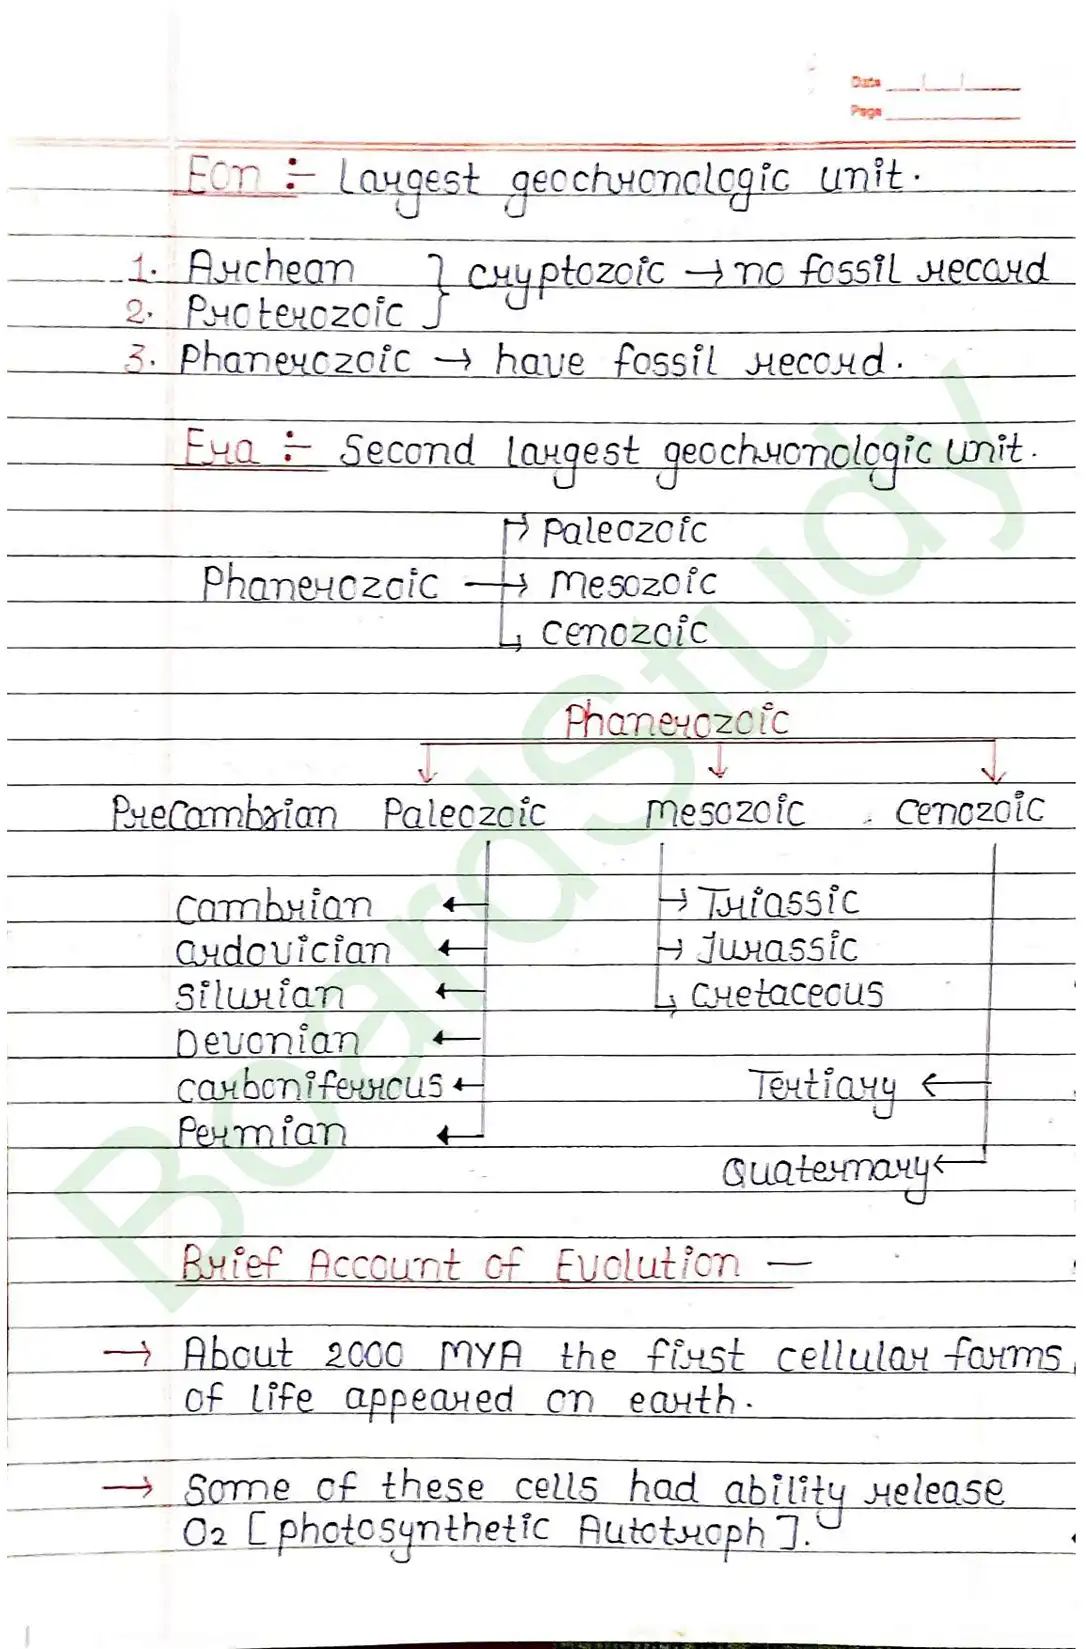 Date ___/___/___
Page ___
Eon :- Largest geochronologic unit.
1. Archean } cryptozoic → no fossil record
2. Proterozoic
3. Phanerozoic → have fossil record.
Era :- Second largest geochronologic unit.
→ Paleozoic
Phanerozoic → Mesozoic
↳ Cenozoic
Phanerozoic
PreCambrian Paleozoic Mesozoic Cenozoic
Cambrian ← → Triassic
Ordovician ← → Jurassic
Silurian ← ↳ Cretaceous
Devonian ←
Carboniferrous ← Tertiary ←
Permian ←
Quaternary ←
Brief Account of Evolution —
→ About 2000 MYA the first cellular forms
of life appeared on earth.
→ Some of these cells had ability release
O2 [photosynthetic Autotroph].
BoardStudy